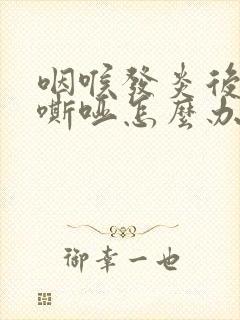 咽喉發炎後
嘶啞怎麼办
御幸一也